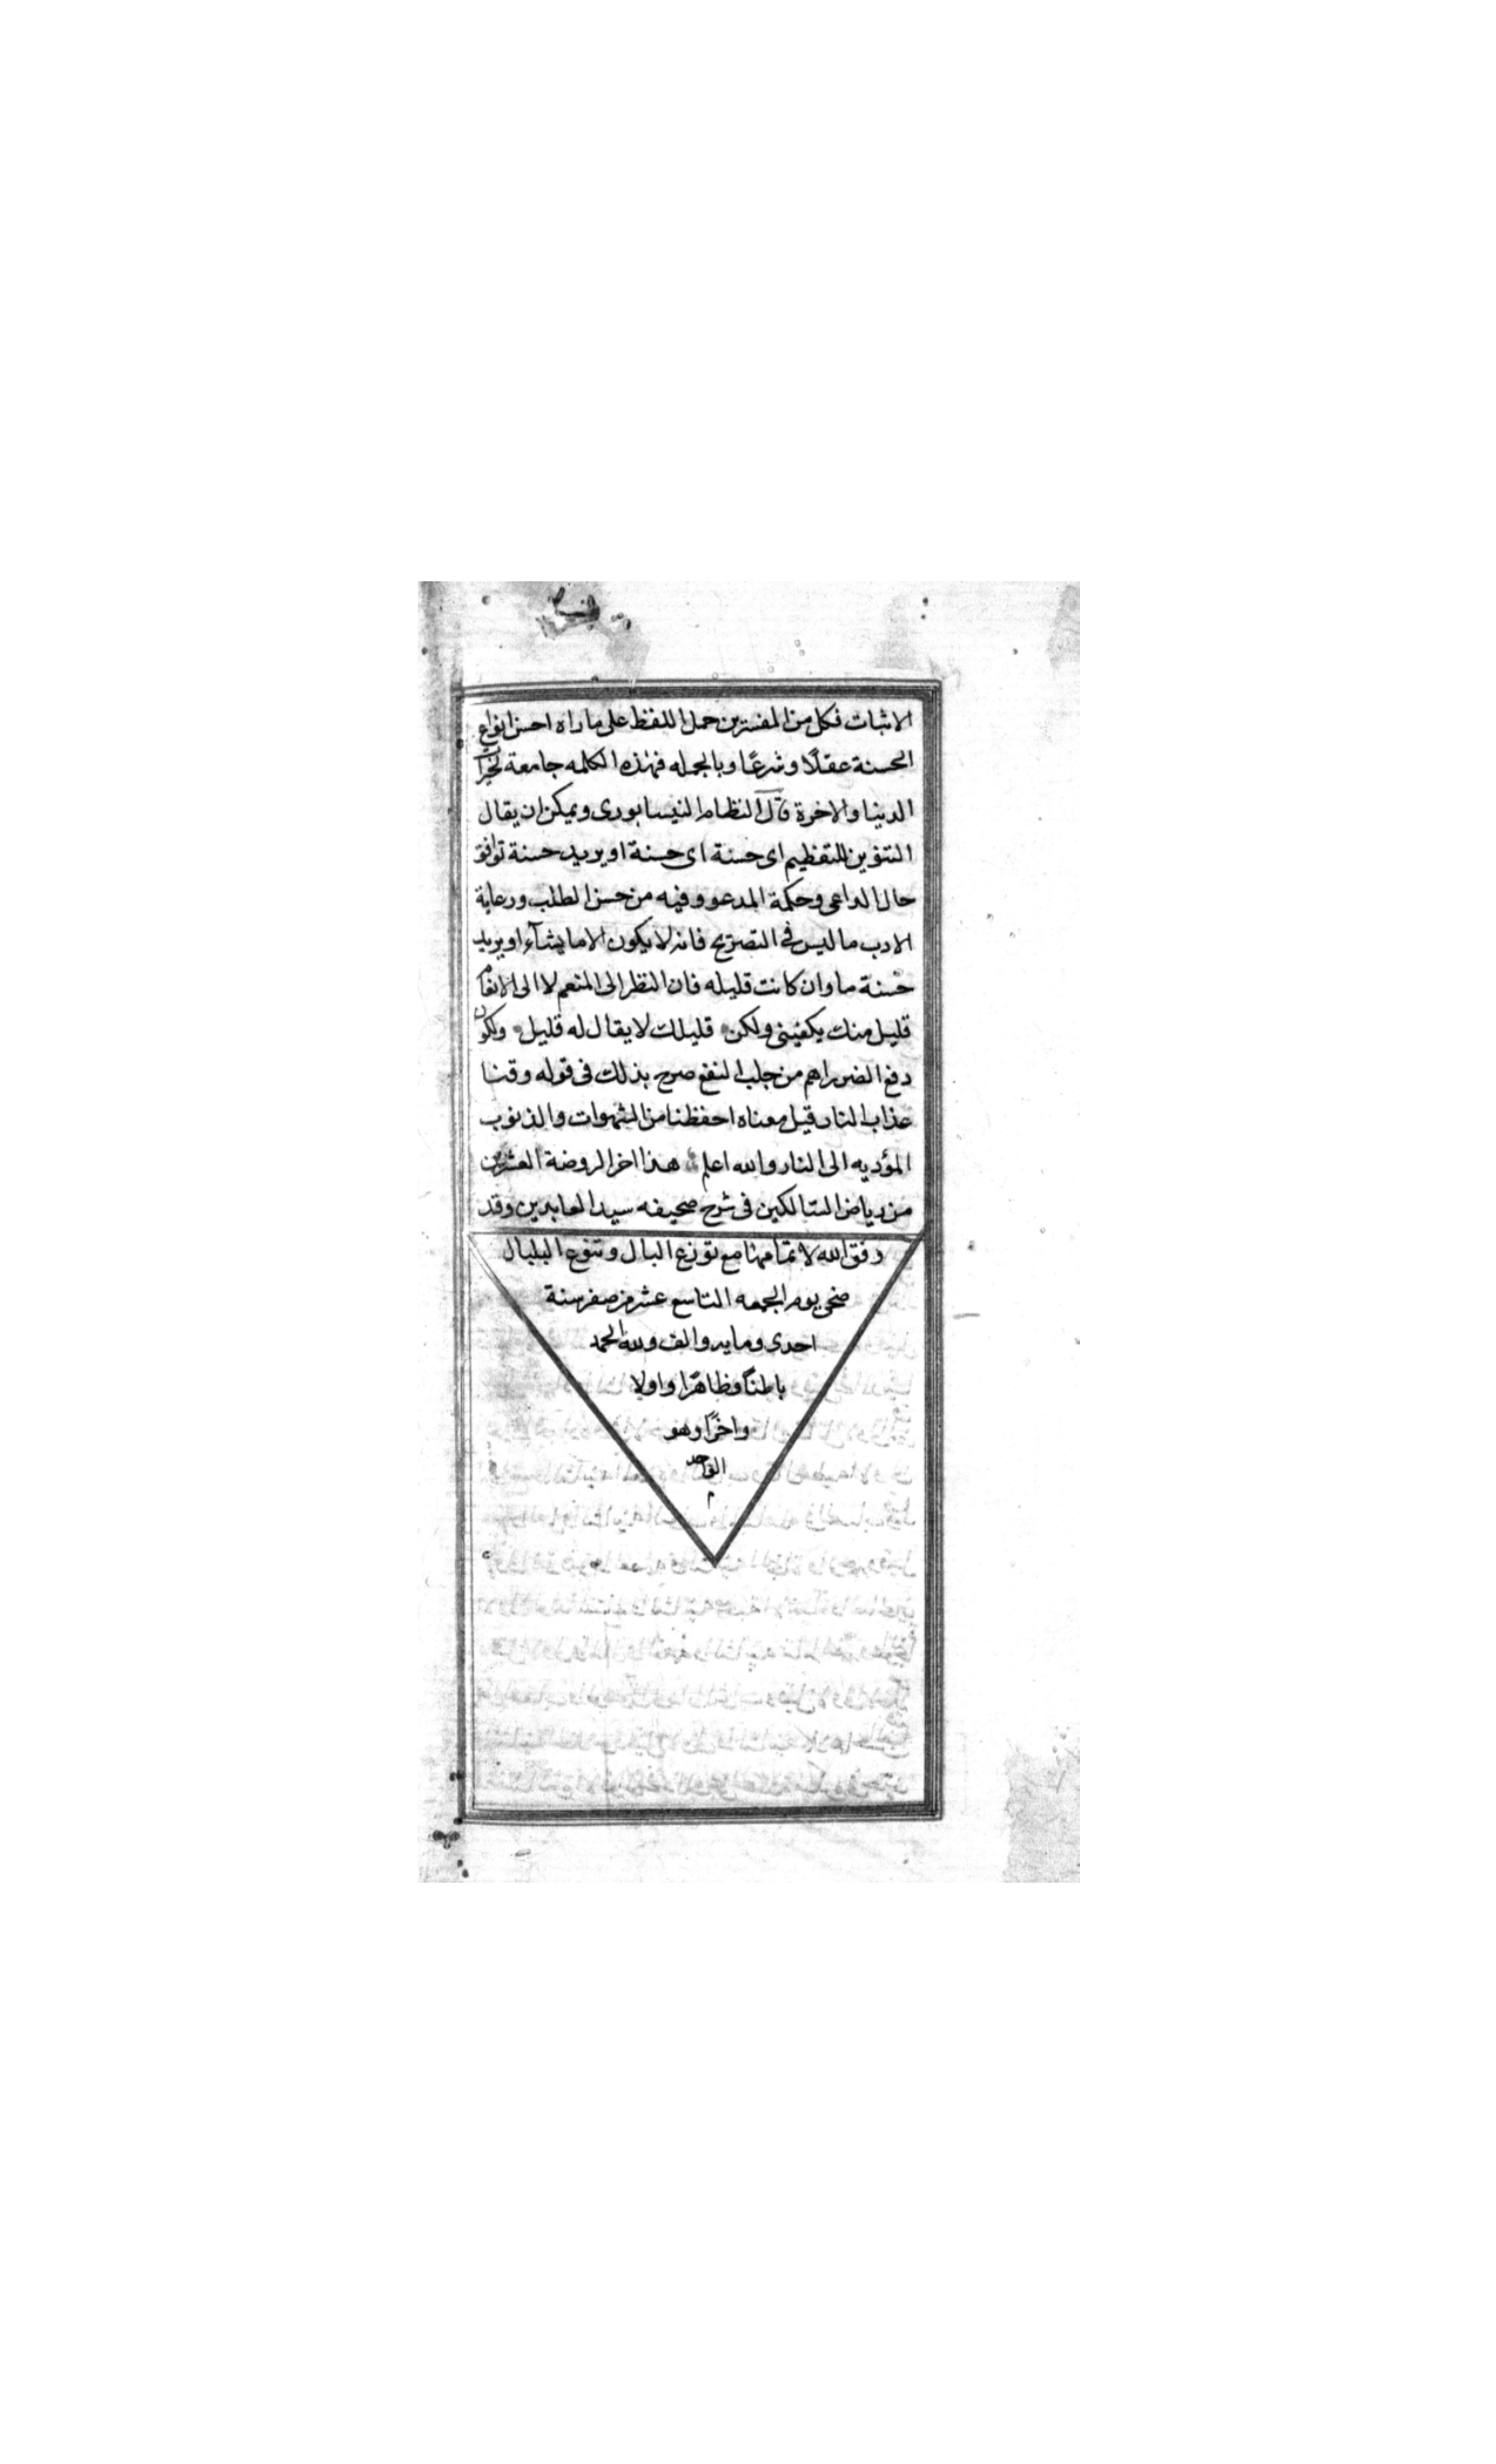 الاثبات فكل من المفسرين حمل اللفظ على ما راه احسن انواع
الحسنة عقلًا وشرعًا وبالجمله فهذه الكلمه جامعة لخيرات
الدينا والاخرة قال النظام النيسابورى ويمكن ان يقال
التنوين للتعظيم اى حسنة اى حسنة او يريد حسنة توافق
حال الداعى وحكمة المدعو وفيه من حسن الطلب ورعاية
الادب ما ليس فى التصريح فانه لا يكون الا ما يشآء او يريد
حسنة ما وان كانت قليله فان النظر الى المنعم لا الى الانعام
قليل منك يكفينى ولكن قليلك لا يقال له قليل ولكون
دفع الضر اهم من جلب النفع صرح بذلك فى قوله وقنا
عذاب النار قيل معناه احفظنا من الشهوات والذنوب
المؤديه الى النار والله اعلم هذا اخر الروضة العشرين
من رياض السالكين فى شرح صحيفه سيد العابدين وقد
وفق الله لاتمامها مع توزع البال وتنوع البلبال
ضحى يوم الجمعه التاسع عشر من صفر سنة
احدى ومايه والف ولله الحمد
باطنًا وظاهرًا واولا
واخرًا وهو
الواحد